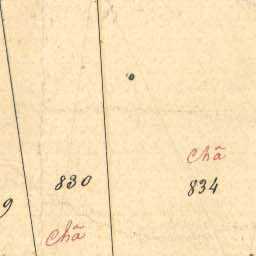 Chã
830
834
9
Chã